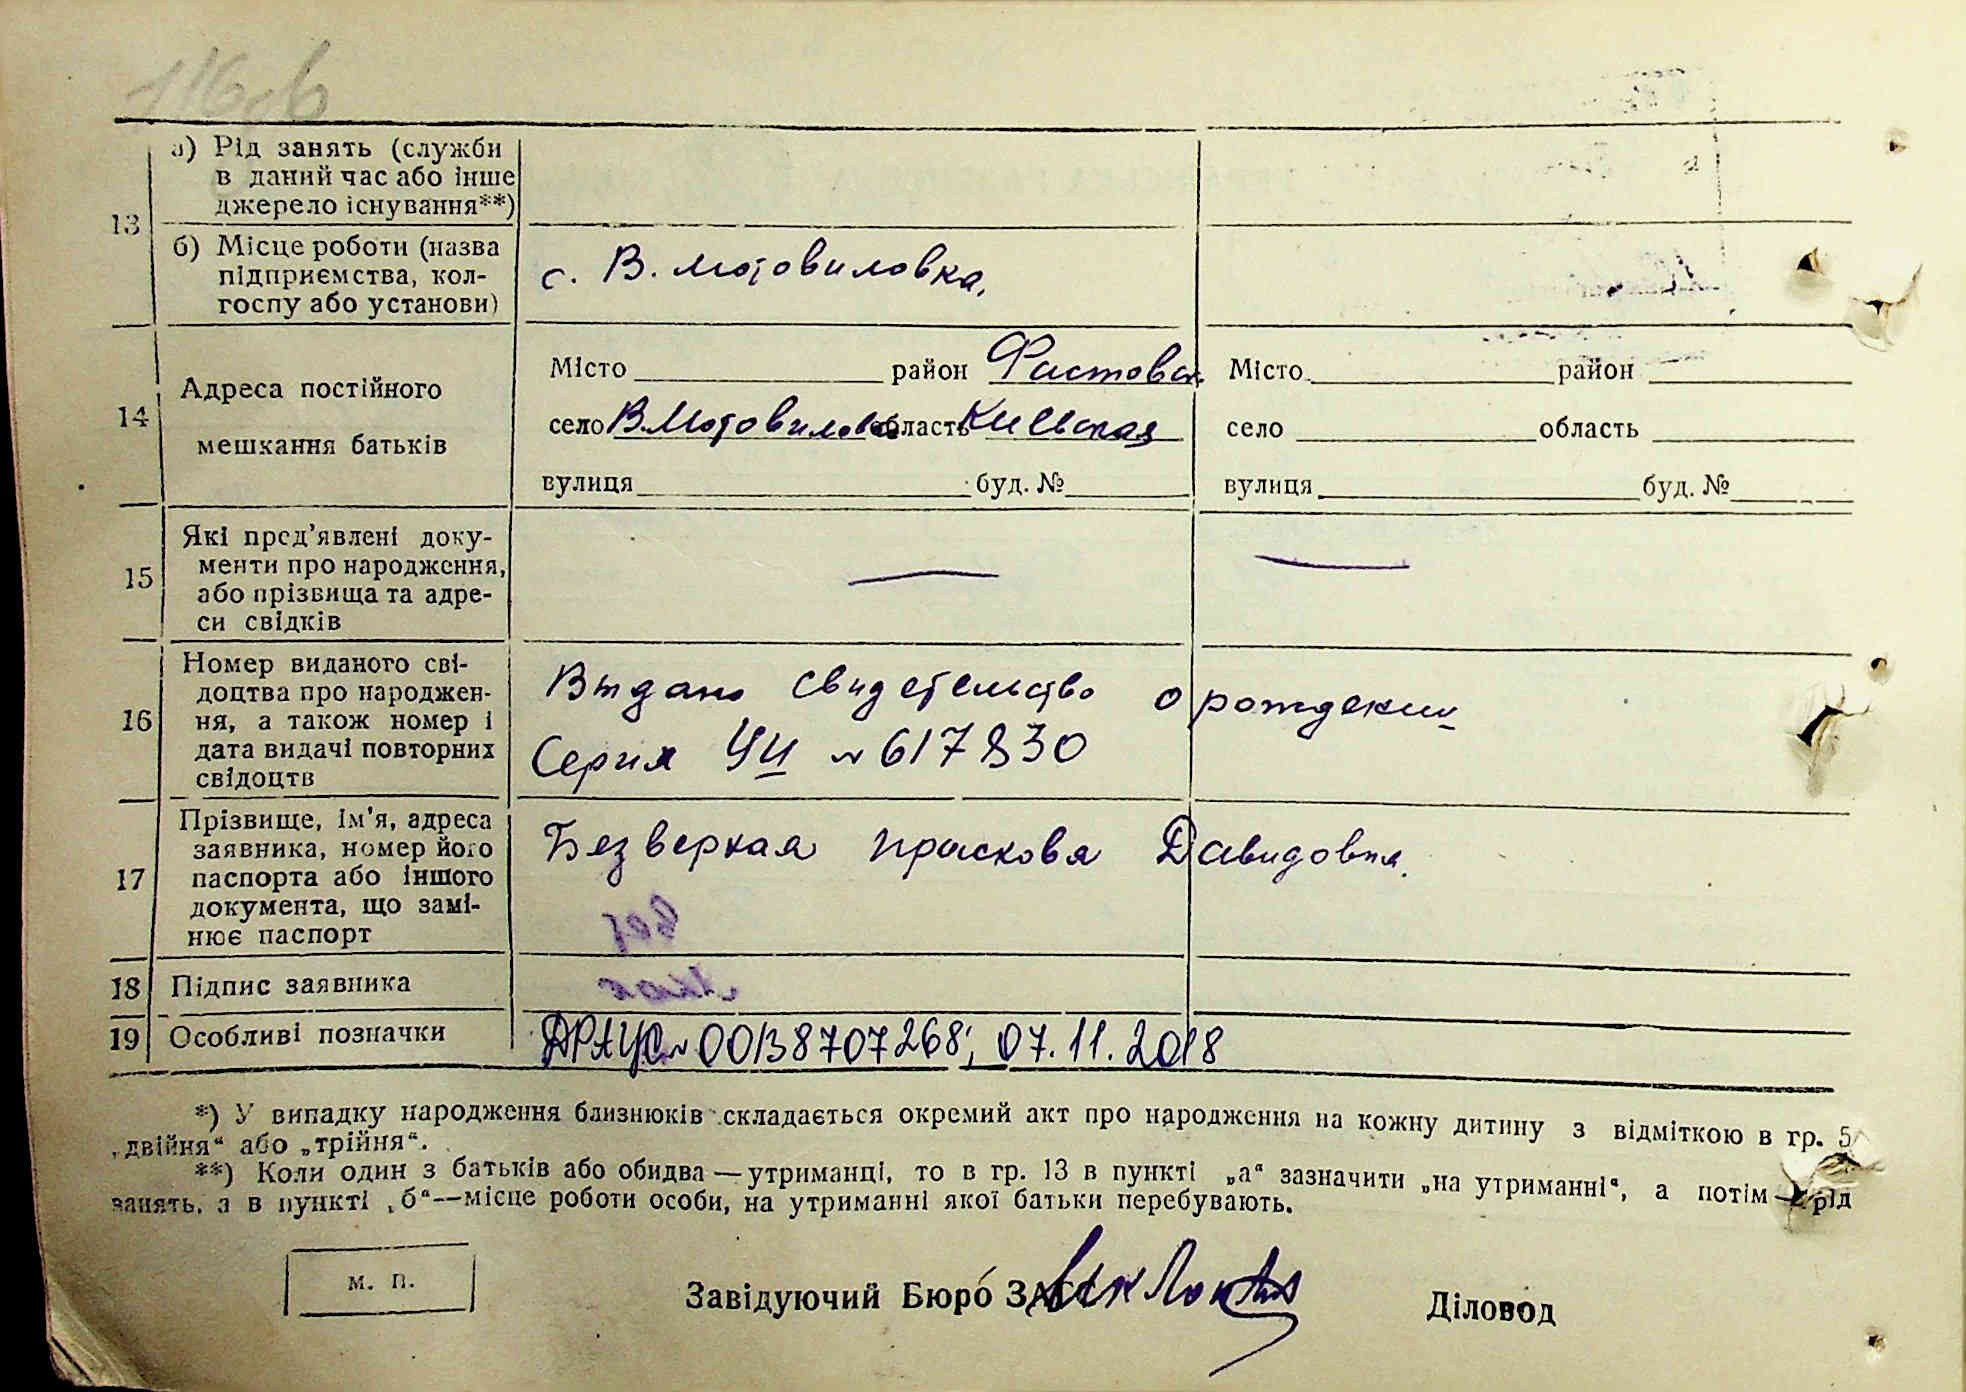 116об
13
а) Рід занять (служби
в даний час або інше
джерело існування**)
б) Місце роботи (назва
підприємства, кол-
госпу або установи)
с. В. Мотовиловка.
14
Адреса постійного
мешкання батьків
Місто район Фастовск.
село В. Мотовиловка область Киевская
вулиця буд. №
Місто район
село область
вулиця буд. №
15
Які пред'явлені доку-
менти про народження,
або прізвища та адре-
си свідків
16
Номер виданого сві-
доцтва про народжен-
ня, а також номер і
дата видачі повторних
свідоцтв
Выдано свидетельство о рождении
Серия УИ № 617830
17
Прізвище, ім'я, адреса
заявника, номер його
паспорта або іншого
документа, що замі-
нює паспорт
Безверхая Прасковя Давидовна.
18 Підпис заявника
19 Особливі позначки
ДРАЦС № 00138707268; 07.11.2018
*) У випадку народження близнюків складається окремий акт про народження на кожну дитину з відміткою в гр. 5
„двійня“ або „трійня“.
**) Коли один з батьків або обидва—утриманці, то в гр. 13 в пункті „а“ зазначити „на утриманні“, а потім — рід
занять, а в пункті „б“—місце роботи особи, на утриманні якої батьки перебувають.
м. п.
Завідуючий Бюро ЗАГС
Діловод